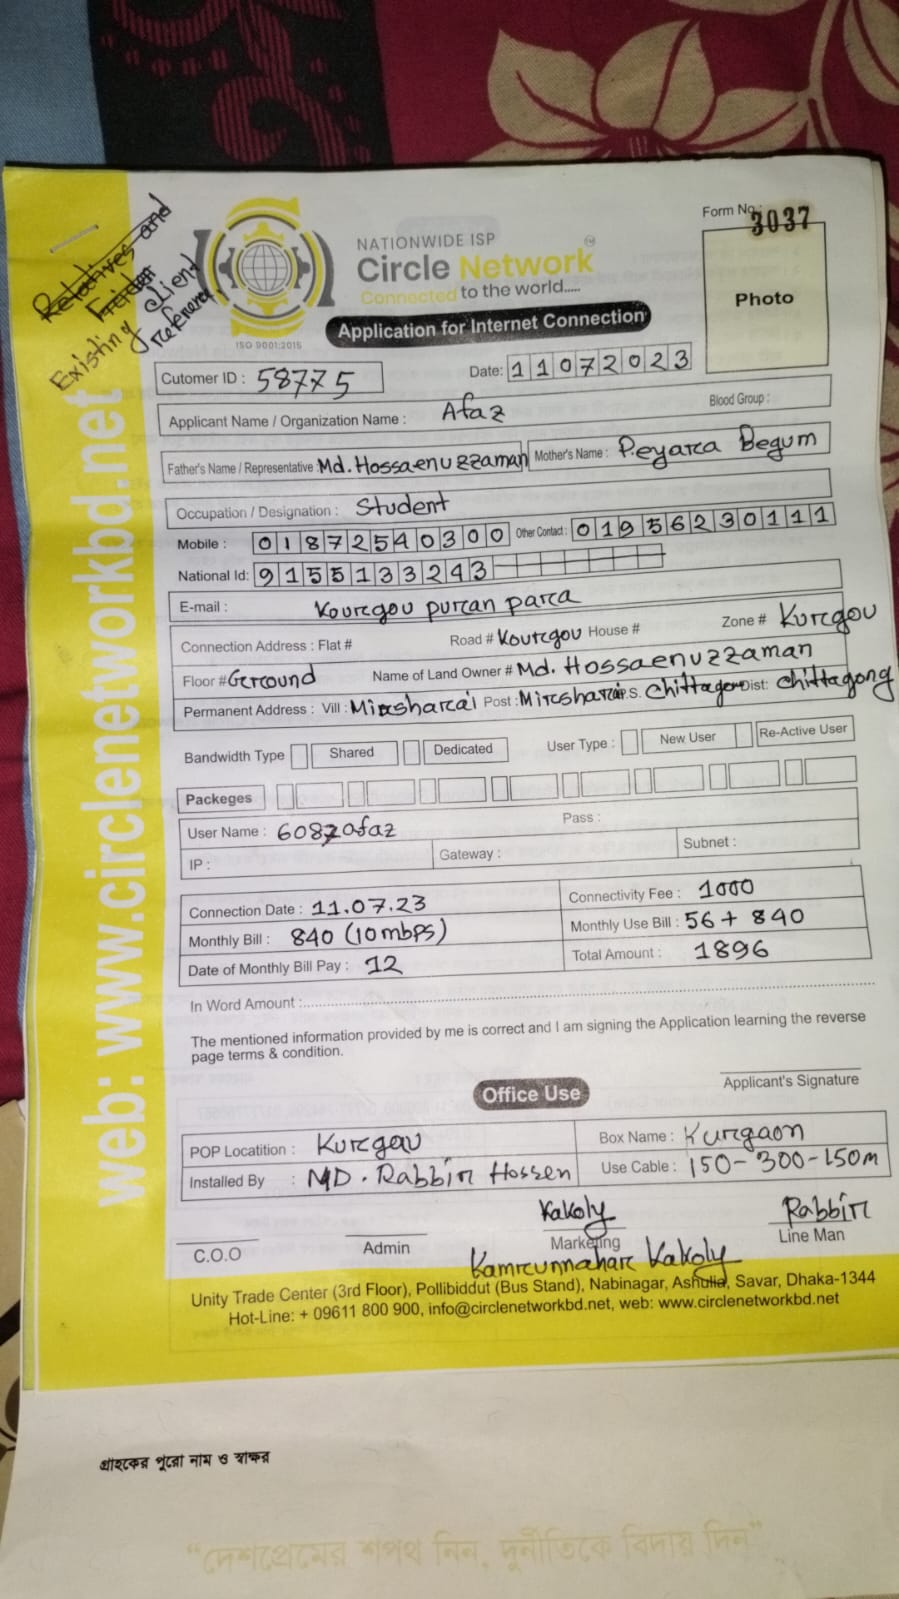 Relatives and
Frinder
Existing client
referenc.
Form No.: 3037
NATIONWIDE ISP
Circle Network
Connected to the world.....
ISO 9001:2015
Application for Internet Connection
Photo
Cutomer ID : 58775
Date: 11072023
Applicant Name / Organization Name : Afaz
Blood Group :
Father's Name / Representative : Md. Hossaenuzzaman Mother's Name : Peyara Begum
Occupation / Designation : Student
Mobile : 01872540300 Other Contact : 01956230111
National Id: 9155133243
E-mail : Kourgou puran para
Connection Address : Flat # Road # Kourgou House # Zone # Kurgou
Floor # Ground Name of Land Owner # Md. Hossaenuzzaman
Permanent Address : Vill : Mirsharai Post : Mirsharai P.S. Chittagong Dist: Chittagong
Bandwidth Type Shared Dedicated User Type : New User Re-Active User
Packeges
User Name : 6087afaz Pass :
IP : Gateway : Subnet :
Connection Date : 11.07.23 Connectivity Fee : 1000
Monthly Bill : 840 (10mbps) Monthly Use Bill : 56 + 840
Date of Monthly Bill Pay : 12 Total Amount : 1896
In Word Amount :
The mentioned information provided by me is correct and I am signing the Application learning the reverse
page terms & condition.
Applicant's Signature
Office Use
POP Locatition : Kurgau Box Name : Kurgaon
Installed By : MD. Rabbir Hossen Use Cable : 150-300-150m
Kakoly Rabbir
C.O.O Admin Marketing Line Man
Kamrunnahar Kakoly
Unity Trade Center (3rd Floor), Pollibiddut (Bus Stand), Nabinagar, Ashulia, Savar, Dhaka-1344
Hot-Line: + 09611 800 900, info@circlenetworkbd.net, web: www.circlenetworkbd.net
web: www.circlenetworkbd.net
গ্রাহকের পুরো নাম ও স্বাক্ষর
“দেশপ্রেমের শপথ নিন, দুর্নীতিকে বিদায় দিন”